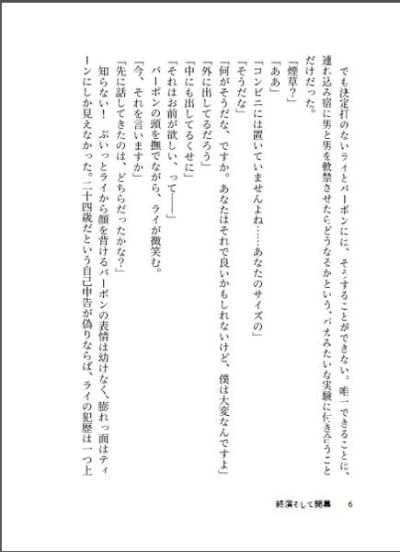 でも決定打のないライとバーボンには、そうすることができない。唯一できることは、
連れ込み宿に男と男を軟禁させたらどうなるかという、バカみたいな実験に付き合うこと
だけだった。
「煙草？」
「ああ」
「コンビニには置いていませんよね……あなたのサイズの」
「そうだな」
「何がそうだな、ですか。あなたはそれで良いかもしれないけど、僕は大変なんですよ」
「外に出してるだろう」
「中にも出してるくせに」
「それはお前が欲しい、って――」
バーボンの頭を撫でながら、ライが微笑む。
「今、それを言いますか」
「先に話してきたのは、どちらだったかな？」
知らない！　ぷいっとライから顔を背けるバーボンの表情は幼けなく、膨れっ面はティ
ーンにしか見えなかった。二十四歳だという自己申告が偽りならば、ライの犯歴は一つ上
終演そして開幕
6